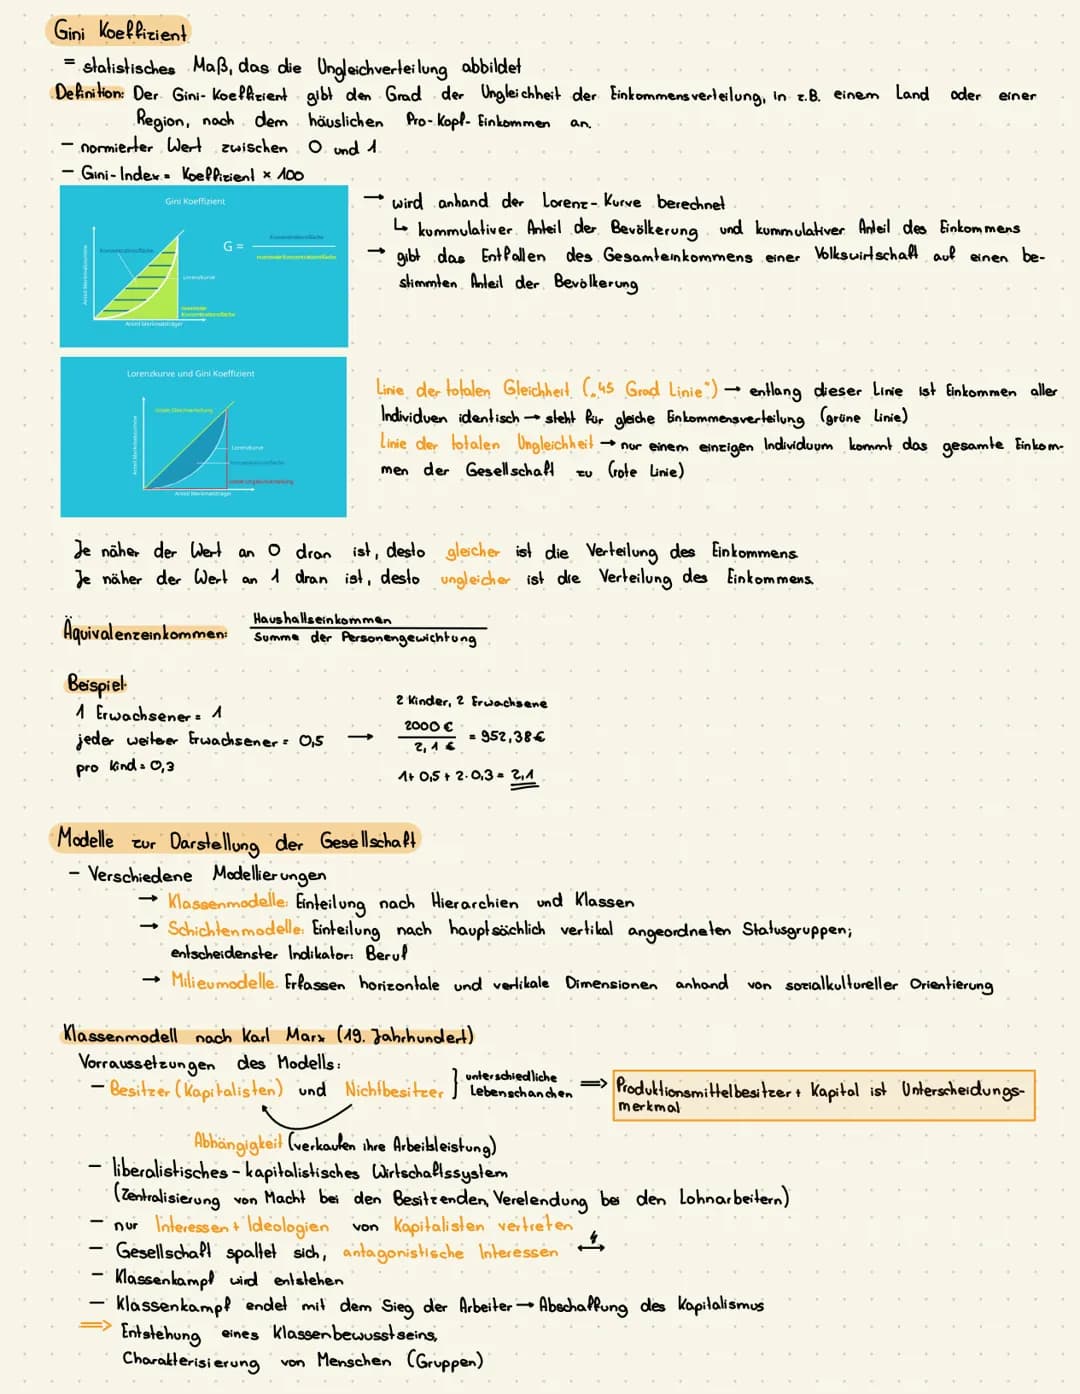 Gini Koeffizient
= statistisches Maß, das die Ungleichverteilung abbildet
Definition: Der Gini-Koeffizient gibt den Grad der Ungleichheit der Einkommensverteilung, in z.B. einem Land oder einer
Region, nach dem häuslichen Pro-Kopf-Einkommen an.
- normierter Wert zwischen 0 und 1
- Gini-Index = Koeffizient × 100
Gini Koeffizient
Konzentrationsfläche
G =
Konzentrationsfläche
maximale Konzentrationsfläche
Lorenzkurve
maximale
Konzentrationsfläche
Anteil Merkmalssumme
Anteil Merkmalsträger
→ wird anhand der Lorenz-Kurve berechnet
↳ kummulativer Anteil der Bevölkerung und kummulativer Anteil des Einkommens
→ gibt das Entfallen des Gesamteinkommens einer Volkswirtschaft auf einen be-
stimmten Anteil der Bevölkerung
Lorenzkurve und Gini Koeffizient
totale Gleichverteilung
Lorenzkurve
Konzentrationsfläche
totale Ungleichverteilung
Anteil Merkmalssumme
Anteil Merkmalsträger
Linie der totalen Gleichheit („45 Grad Linie") → entlang dieser Linie ist Einkommen aller
Individuen identisch → steht für gleiche Einkommensverteilung (grüne Linie)
Linie der totalen Ungleichheit → nur einem einzigen Individuum kommt das gesamte Einkom-
men der Gesellschaft zu (rote Linie)
Je näher der Wert an 0 dran ist, desto gleicher ist die Verteilung des Einkommens
Je näher der Wert an 1 dran ist, desto ungleicher ist die Verteilung des Einkommens.
Äquivalenzeinkommen:
Haushaltseinkommen
Summe der Personengewichtung
Beispiel:
1 Erwachsener = 1
jeder weiterer Erwachsener = 0,5 →
pro Kind = 0,3
2 Kinder, 2 Erwachsene
2000 €
2,1 €
= 952,38€
1+ 0,5 + 2·0,3 = 2,1
Modelle zur Darstellung der Gesellschaft
- Verschiedene Modellierungen
→ Klassenmodelle: Einteilung nach Hierarchien und Klassen
→ Schichtenmodelle: Einteilung nach hauptsächlich vertikal angeordneten Statusgruppen;
entscheidenster Indikator: Beruf
→ Milieumodelle: Erfassen horizontale und vertikale Dimensionen anhand von sozialkultureller Orientierung
Klassenmodell nach Karl Marx (19. Jahrhundert)
Vorraussetzungen des Modells:
- Besitzer (Kapitalisten) und Nichtbesitzer } unterschiedliche
Lebenschanchen
⇒ Produktionsmittelbesitzer + Kapital ist Unterscheidungs-
merkmal
Abhängigkeit (verkaufen ihre Arbeitsleistung)
- liberalistisches - kapitalistisches Wirtschaftssystem
(Zentralisierung von Macht bei den Besitzenden, Verelendung bei den Lohnarbeitern)
- nur Interessen + Ideologien von Kapitalisten vertreten
- Gesellschaft spaltet sich, antagonistische Interessen ↔
- Klassenkampf wird entstehen
- Klassenkampf endet mit dem Sieg der Arbeiter → Abschaffung des Kapitalismus
⇒ Entstehung eines Klassenbewusstseins,
Charakterisierung von Menschen (Gruppen)